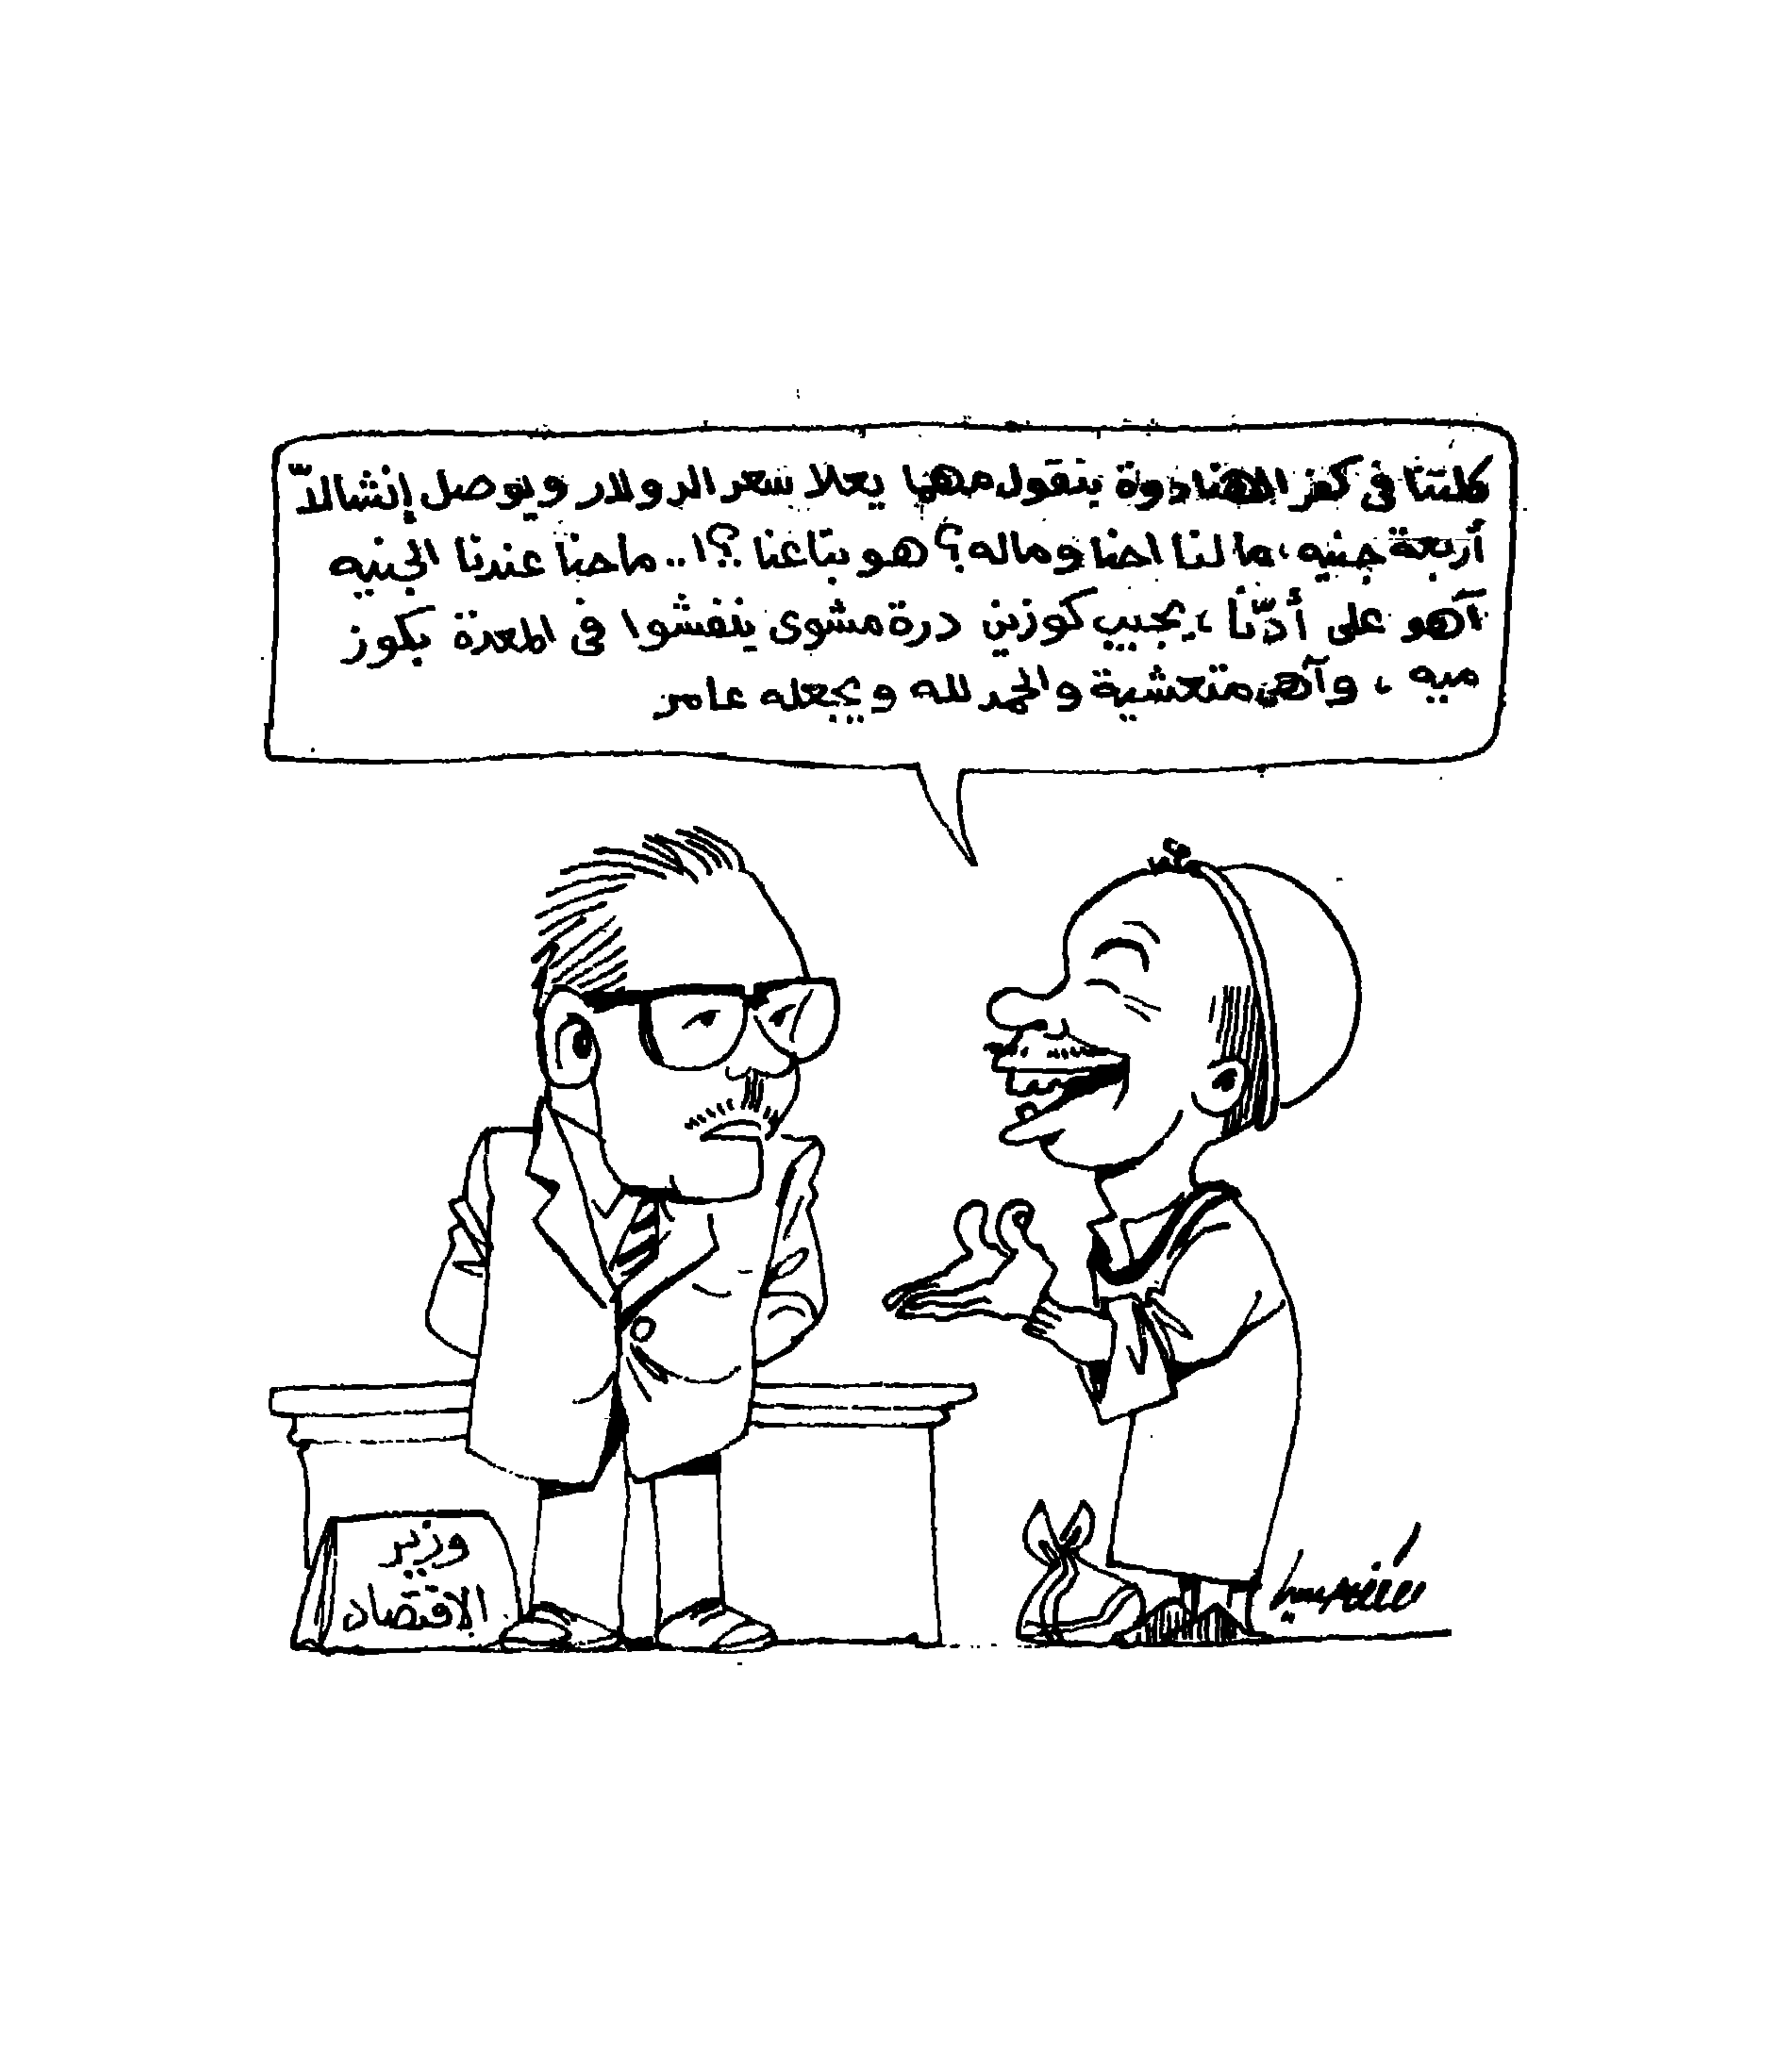 كلتنا فى كفر الهنادوة بنقول مهما يعلا سعر الدولار ويوصل إنشالله
أربعة جنيه، مالنا احنا وماله؟ هو بتاعنا ؟!.. ماحنا عندنا الجنيه
آهو على أدّنا، يجيب كوزين درة مشوى ينفشوا فى المعدة بكوز
ميه، وآهى متعشية والحمد لله ويجعله عامر
وزير
الاقتصاد